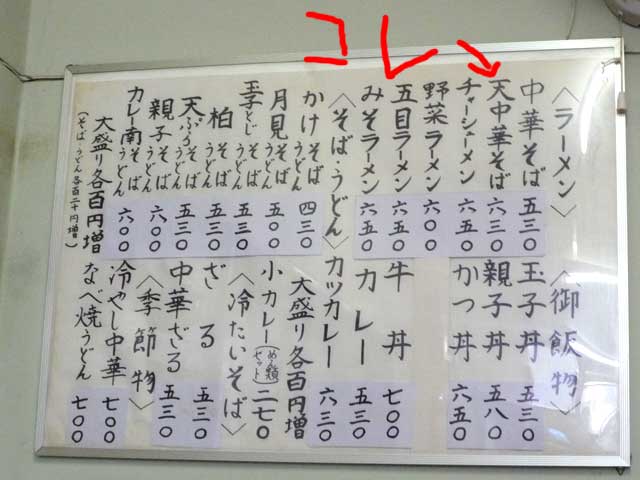 コレ
〈ラーメン〉
中華そば 五三〇
天中華そば 六三〇
チャーシューメン 六五〇
野菜ラーメン 六〇〇
五目ラーメン 六五〇
みそラーメン 六五〇
〈そば、うどん〉
かけそばうどん 四三〇
月見そばうどん 五〇〇
玉子とじそばうどん 五三〇
柏そばうどん 五三〇
天ぷらそばうどん 五三〇
親子そばうどん 六〇〇
カレー南そばうどん 六〇〇
大盛り各百円増
（そば、うどん各百二十円増）
〈御飯物〉
玉子丼 五三〇
親子丼 五八〇
かつ丼 六五〇
牛丼 七〇〇
カレー 五三〇
カツカレー 六三〇
大盛り各百円増
小カレー（めん類セット） 二七〇
〈冷たいそば〉
ざる 五三〇
中華ざる 五三〇
〈季節物〉
冷やし中華 七〇〇
なべ焼うどん 七〇〇